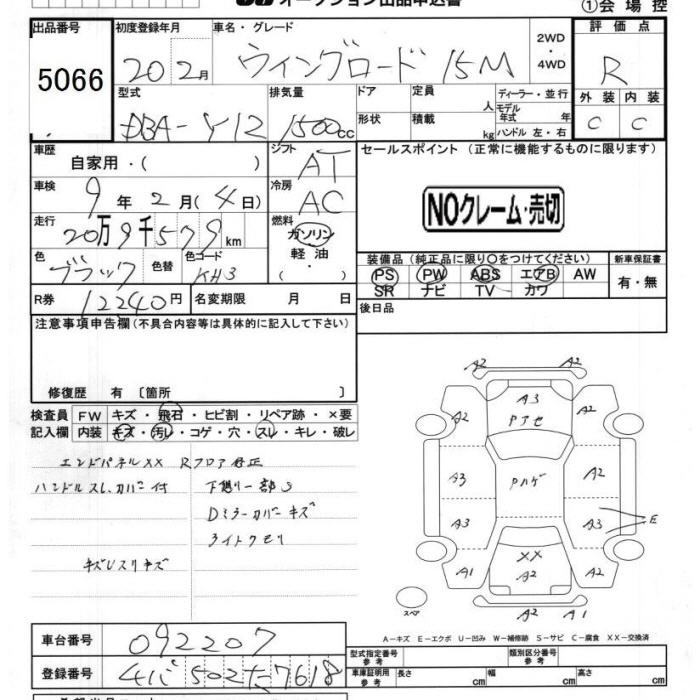 オークション出品申込書
①会 場 控
出品番号
5066
初度登録年月
20 2月
車名・グレード
ウイングロード 15M
2WD
・
4WD
評 価 点
R
外 装
内 装
C
C
型式
DBA-Y12
排気量
1500cc
ドア
形状
定員
人
積載
kg
ディーラー・並行
モデル
年式
年
ハンドル 左・右
車歴
自家用・( )
シフト
AT
車検
9 年 2 月 (4 日)
冷房
AC
走行
20万9千579km
燃料
ガソリン
軽 油
・
( )
色
ブラック
色替
色コード
KH3
R券
12240円
名変期限 月 日
セールスポイント (正常に機能するものに限ります)
NOクレーム・売切
装備品 (純正品に限り○をつけてください)
PS
PW
ABS
エアB
AW
SR
ナビ
TV
カワ
新車保証書
有・無
後日品
注意事項申告欄(不具合内容等は具体的に記入して下さい)
修復歴 有 〔箇所 〕
検査員
記入欄
FW
キズ・飛石・ヒビ割・リペア跡・×要
内装
キズ・汚レ・コゲ・穴・スレ・キレ・破レ
エンドパネルXX Rフロア修正
ハンドルスレ、カバー付
下廻り一部S
Dミラーカバーキズ
ライトクモリ
A2
A2
A3
Pアセ
A2
A2
A3
Pハゲ
A2
A3
A3
E
A1
XX
A2
A2
A2
A1
スペア
A-キズ E-エクボ U-凹み W-補修跡 S-サビ C-腐食 XX-交換済
車台番号
092207
登録番号
502 た 7618
型式指定番号
参 考
類別区分番号
参 考
車庫証明用
参 考
長さ
cm
幅
cm
高さ
cm